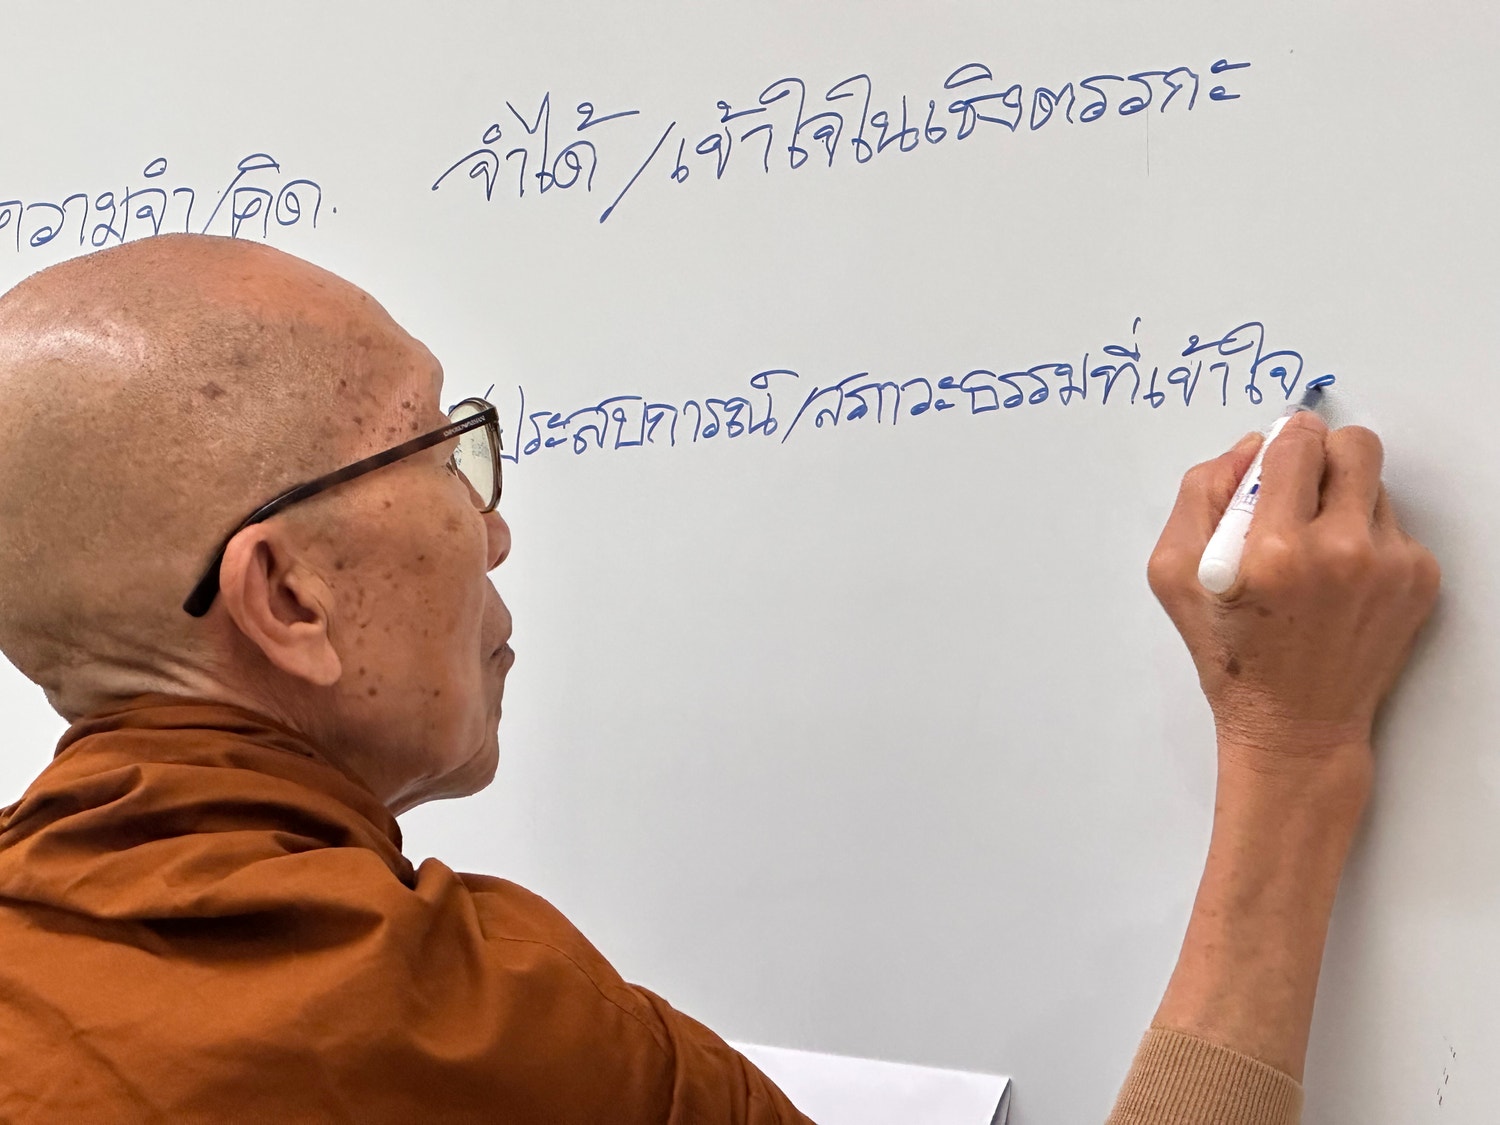 ความจำ/คิด. จำได้/เข้าใจในเชิงตรรกะ
ประสบการณ์/สภาวะธรรมที่เข้าใจ